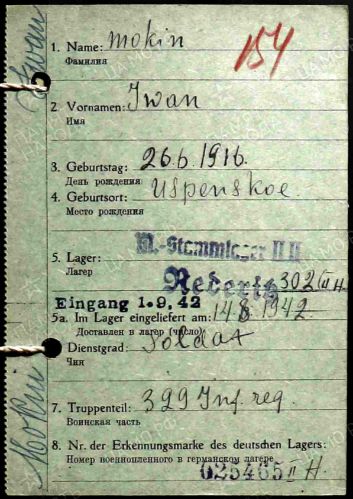 Iwan
154
1. Name: Mokin
Фамилия
2. Vornamen: Iwan
Имя
3. Geburtstag: 26.6.1916.
День рождения
4. Geburtsort: Uspenskoe
Место рождения
M.-Stammlager II H
5. Lager:
Лагер
Rederitz 302 II H
Eingang 1.9.42
5a. Im Lager eingeliefert am: 14.8.1942.
Доставлен в лагер (число)
Dienstgrad: Soldat
Чин
7. Truppenteil: 399 Inf. reg.
Воинская часть
8. Nr. der Erkennungsmarke des deutschen Lagers:
Номер военнопленного в германском лагере
025465 II H
Mokin